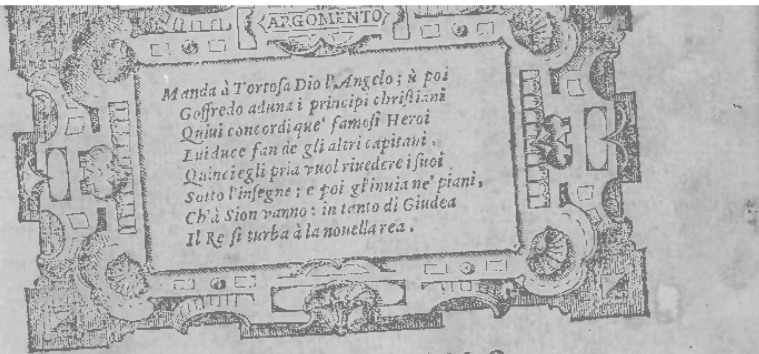 ARGOMENTO
Manda à Tortoſa Dio l'Angelo; ù poi
Goffredo aduna i principi chriſtiani
Quiui concordi que' famoſi Heroi
Lui duce fan de gli altri capitani.
Quinci egli pria vuol riuedere i ſuoi
Sotto l'inſegne; e poi gl'inuia ne' piani,
Ch'à Sion vanno: in tanto di Giudea
Il Re ſi turba à la nouella rea.